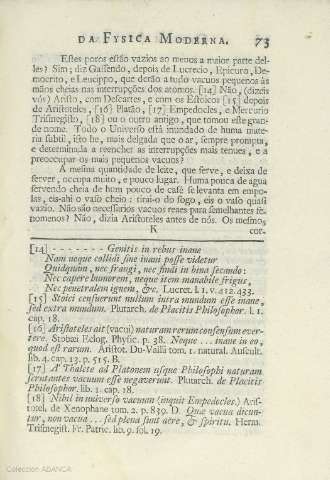 DA FYSICA MODERNA. 73
Estes poros estão vazios ao menos a maior parte del-
les? Sim; diz Gassendo, depois de Lucrecio, Epicuro, De-
mocrito, e Leucippo, que derão a tudo vacuos pequenos ás
mãos cheias nas interrupções dos atomos. [14] Não, (dizeis
vós) Aristo, com Descartes, e com os Estoicos [15] depois
de Aristoteles, [16] Platão, [17] Empedocles, e Mercurio
Trismegisto, [18] ou o outro antigo, que tomou este gran-
de nome. Todo o Universo está inundado de huma mate-
ria subtil, isto he, mais delgada que o ar, sempre prompta,
e determinada a reencher as interrupções mais tenues, e a
preoccupar os mais pequenos vacuos?
A mesma quantidade de leite, que serve, e deixa de
ferver, occupa muito, e pouco lugar. Huma pouca de agua
fervendo cheia de hum pouco de café se levanta em empo-
las, eis-ahi o vaso cheio: tirai-o do fogo, eis o vaso quasi
vazio. Não são necessarios vacuos reaes para semelhantes fe-
nomenos? Não, dizia Aristoteles antes de nós. Os mesmos
K cor-
[14] - - - - - - - Genitis in rebus inane
Nam neque collidi sine inani posse videtur
Quidquam, nec frangi, nec findi in bina secando:
Nec capere humorem, neque item manabile frigus,
Nec penetralem ignem, &c. Lucret. l. 1. v. 412. 433.
[15] Stoici censuerunt nullum intra mundum esse inane,
sed extra mundum. Plutarch. de Placitis Philosophor. l. 1.
cap. 18.
[16] Aristoteles ait (vacui) naturam rerum consensum ever-
tere. Stobæi Eclog. Physic. p. 38. Neque ... inane in eo,
quod est rarum. Aristot. Du-Vallii tom. 1. natural. Auscult.
lib. 4. cap. 13. p. 515. B.
[17] A Thalete ad Platonem usque Philosophi naturam
scrutantes vacuum esse negaverunt. Plutarch. de Placitis
Philosophor. lib. 1. cap. 18.
[18] Nihil in universo vacuum (inquit Empedocles.) Aris-
totel. de Xenophane tom. 2. p. 839. D. Quæ vacua dicun-
tur, non vacua ... sed plena sunt aere, & spiritu. Herm.
Trismegist. Fr. Patric. lib. 9. fol. 19.
Colección ADANCA